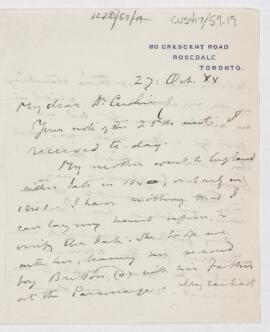 CUS417/59.19
80 CRESCENT ROAD
ROSEDALE
TORONTO.
27: Oct. XX
My dear Dr
Your note of the 25th inst. I
received to day.
My mother went to England
either late in or early in
I have nothing that I
can lay my hands upon, to
verify the date. She took me
with her, leaving her second
boy Britton (O) with her Father
at the Parsonage. My earliest